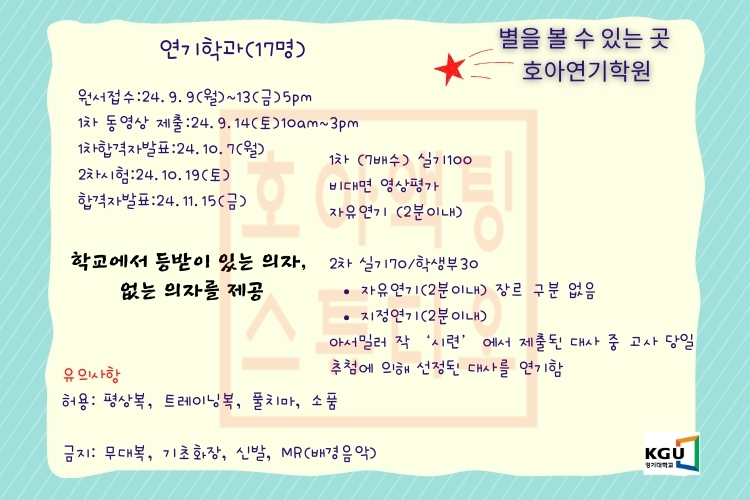 연기학과(17명)
별을 볼 수 있는 곳
호아연기학원
원서접수:24.9.9(월)~13(금)5pm
1차 동영상 제출:24.9.14(토)10am~3pm
1차합격자발표:24.10.7(월)
2차시험:24.10.19(토)
합격자발표:24.11.15(금)
1차 (7배수) 실기100
비대면 영상평가
자유연기 (2분이내)
학교에서 등받이 있는 의자,
없는 의자를 제공
2차 실기70/학생부30
• 자유연기(2분이내) 장르 구분 없음
• 지정연기(2분이내)
아서밀러 작 ‘시련’ 에서 제출된 대사 중 고사 당일
추첨에 의해 선정된 대사를 연기함
유의사항
허용: 평상복, 트레이닝복, 풀치마, 소품
금지: 무대복, 기초화장, 신발, MR(배경음악)
호아액팅
스튜디오
KGU
경기대학교